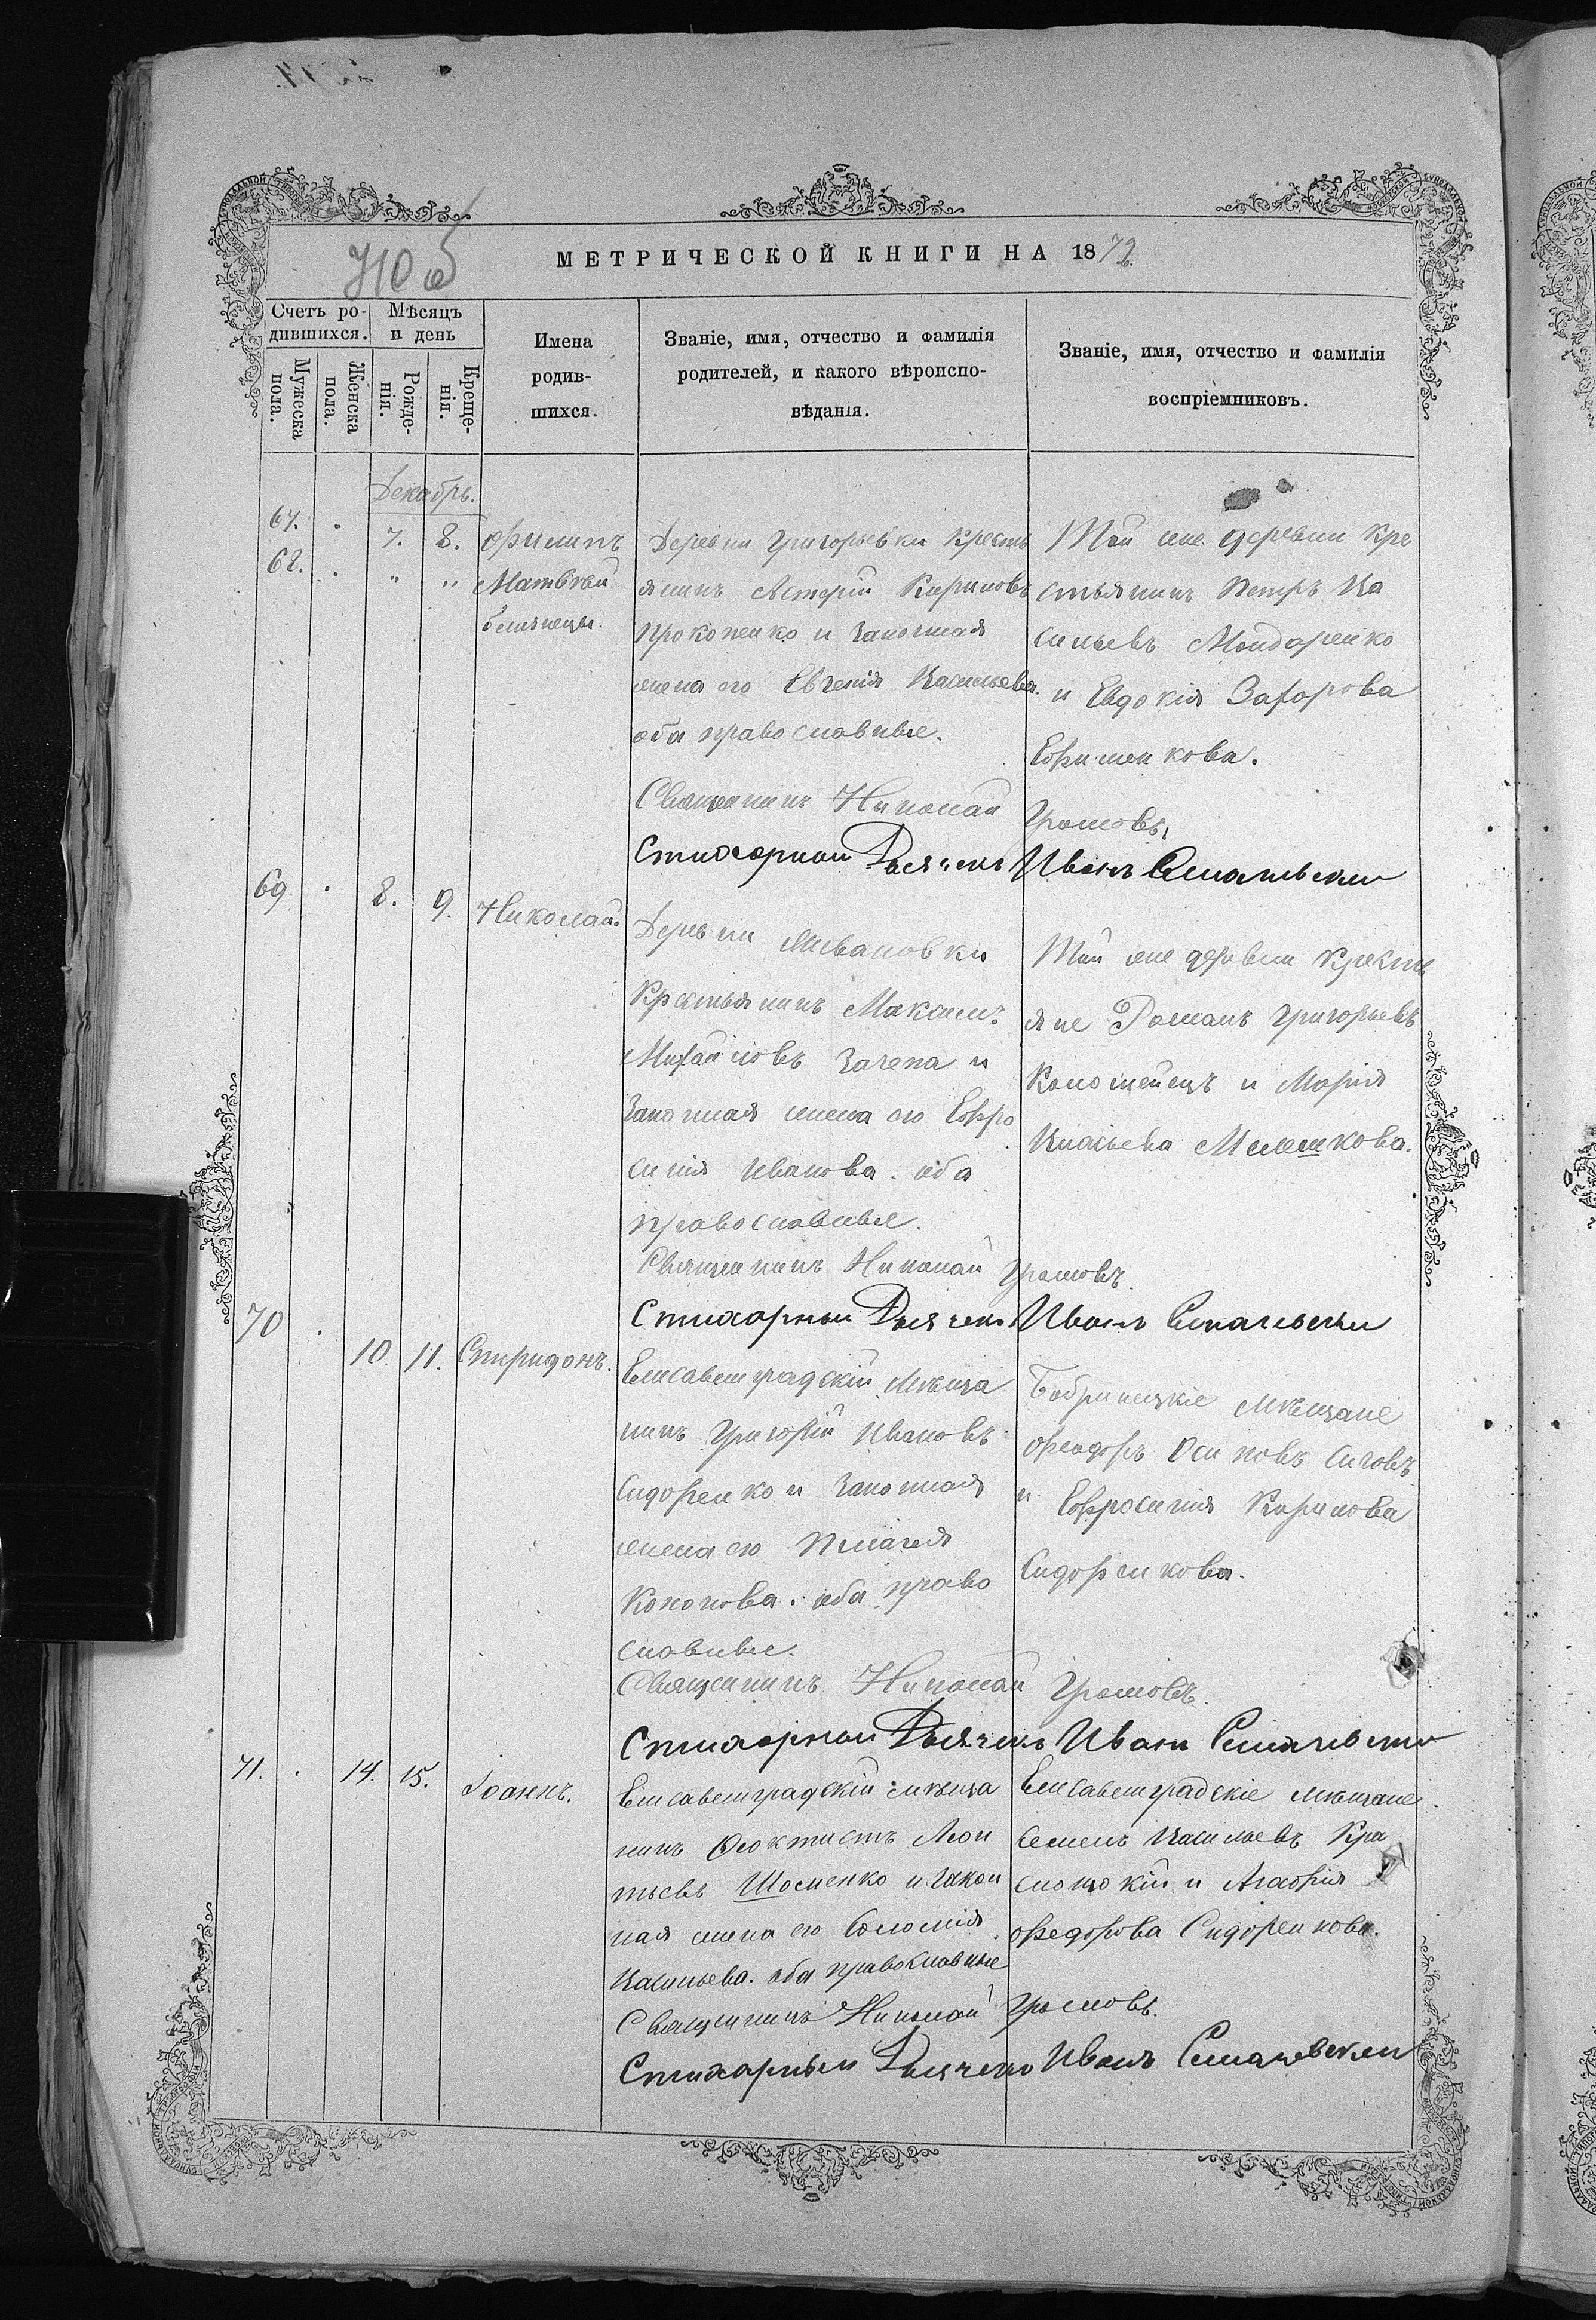 710 об
МЕТРИЧЕСКОЙ КНИГИ НА 1872.
Счетъ родившихся.
Мѣсяцъ и день
Мужеска пола.
Женска пола.
Рожденія.
Крещенія.
Имена
родив-
шихся.
Званіе, имя, отчество и фамилія
родителей, и какого вѣроиспо-
вѣданія.
Званіе, имя, отчество и фамилія
воспріемниковъ.
Декабрь.
67. 7. 8. Филипъ
68. " " Матвѣй
близнецы.
Деревни Григорьевки Кресть
янинъ Астерій Кириловъ
Прокопенко и законная
жена его Евгенія Васильева.
оба православные.
Той же деревни Кре
стьянинъ Петръ Ва
сильевъ Бондаренко
и Евдокія Захарова
Ефименкова.
Священникъ Николай Громовъ.
Стихарный Дьячекъ Иванъ
69. 8. 9. Николай.
Деревни Ивановки
Крестьянинъ Максимъ
Михайловъ Зачепа и
Законная жена его Ефро
синія Иванова. оба
православные.
Той же деревни Кресть
яне Романъ Григорьевъ
Коломѣецъ и Марія
Мелешкова.
Священникъ Николай Громовъ.
Стихарный Дьячекъ Иванъ
70 10. 11. Спиридонъ.
Елисаветградскій мѣща
нинъ Григорій Ивановъ
Сидоренко и Законная
жена его Пелагея
Кононова. оба право
славные.
Бобринецкіе мѣщане
Феодоръ Осиповъ
и Ефросинія Кирилова
Сидоренкова.
Священникъ Николай Громовъ.
Стихарный Дьячекъ Иванъ
71. 14. 15. Іоаннъ.
Елисаветградскій мѣща
нинъ Феоктистъ Леон
тьевъ Шосменко и Закон
ная жена его Соломія
Васильева. оба православные
Елисаветградскіе мѣщане
Семенъ Васильевъ Кра
и Агафія
Федорова Сидоренкова.
Священникъ Николай Громовъ.
Стихарный Дьячекъ Иванъ